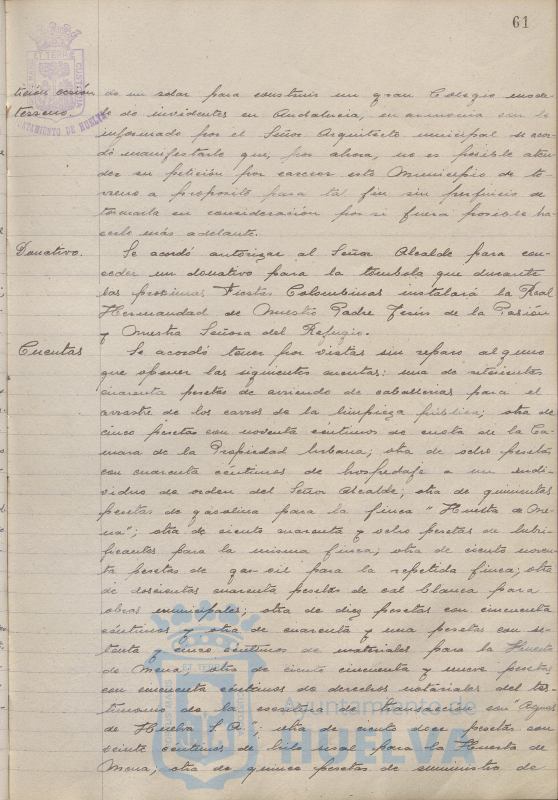 61
tición cesión de un solar para construir un gran Colegio mode-
terreno. lo de invidentes en Andalucía, en armonía con lo
informado por el Señor Arquitecto municipal se acor-
dó manifestarle que, por ahora, no es posible aten-
der su petición por carecer este Municipio de te-
rreno a propósito para tal fin sin perjuicio de
tomarla en consideración por si fuera posible ha-
cerlo más adelante.
Donativo. Se acordó autorizar al Señor Alcalde para con-
ceder un donativo para la tómbola que durante
las próximas Fiestas Colombinas instalará la Real
Hermandad de Nuestro Padre Jesús de la Pasión
y Nuestra Señora del Refugio.
Cuentas Se acordó tener por vistas sin reparo alguno
que oponer las siguientes cuentas: una de setecientas
cuarenta pesetas de arriendo de caballerías para el
arrastre de los carros de la limpieza pública; otra de
cinco pesetas con noventa céntimos de cuota de la Cá-
mara de la Propiedad Urbana; otra de ocho pesetas
con cuarenta céntimos de hospedaje a un indi-
viduo de orden del Señor Alcalde; otra de quinientas
pesetas de gasolina para la finca "Huerta de Me-
na"; otra de ciento cuarenta y ocho pesetas de lubri-
ficantes para la misma finca; otra de ciento noven-
ta pesetas de gas-oil para la repetida finca; otra
de doscientas cuarenta pesetas de cal blanca para
obras municipales; otra de diez pesetas con cincuenta
céntimos y otra de cuarenta y una pesetas con se-
tenta y cinco céntimos de materiales para la Huerta
de Mena; otra de ciento cincuenta y nueve pesetas
con cincuenta céntimos de derechos notariales del tes-
timonio de la escritura de transacción con "Aguas
de Huelva S.A."; otra de ciento doce pesetas con
veinte céntimos de hilo sisal para la Huerta de
Mena; otra de quince pesetas de suministro de
AYUNTAMIENTO DE HUELVA
Ayuntamiento de
HUELVA